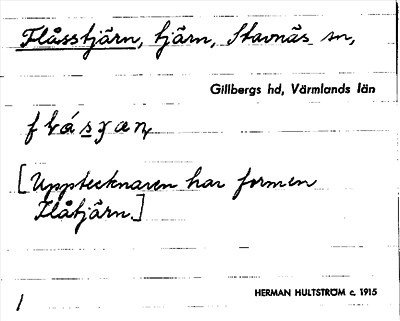 Flåsstjärn, tjärn, Stavnäs sn,
Gillbergs hd, Värmlands län
[Upptecknaren har formen
Flåtjärn.]
HERMAN HULTSTRÖM c. 1915
1